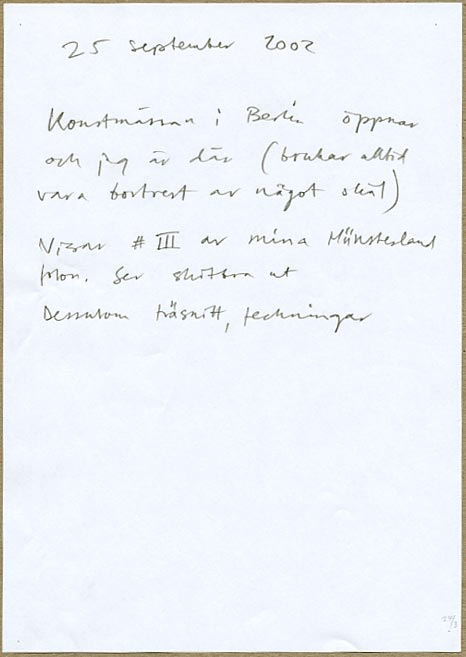 25 september 2002
Konstmässan i Berlin öppnar
och jag är där (brukar alltid
vara bortrest av något skäl)
Visar # III av mina Münsterland
foton. Ser skitbra ut
Dessutom träsnitt, teckningar